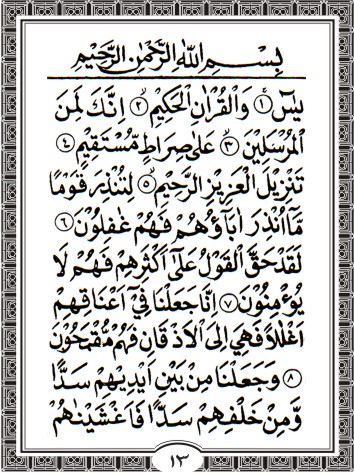 بِسْمِ اللهِ الرَّحْمٰنِ الرَّحِيْمِ
يٰسٓ ﴿١﴾ وَالْقُرْاٰنِ الْحَكِيْمِ ﴿٢﴾ اِنَّكَ لَمِنَ
الْمُرْسَلِيْنَ ﴿٣﴾ عَلٰى صِرَاطٍ مُّسْتَقِيْمٍ ﴿٤﴾
تَنْزِيْلَ الْعَزِيْزِ الرَّحِيْمِ ﴿٥﴾ لِتُنْذِرَ قَوْمًا
مَّآ اُنْذِرَ اٰبَآؤُهُمْ فَهُمْ غٰفِلُوْنَ ﴿٦﴾
لَقَدْ حَقَّ الْقَوْلُ عَلٰٓى اَكْثَرِهِمْ فَهُمْ لَا
يُؤْمِنُوْنَ ﴿٧﴾ اِنَّا جَعَلْنَا فِيْٓ اَعْنَاقِهِمْ
اَغْلٰلًا فَهِيَ اِلَى الْاَذْقَانِ فَهُمْ مُّقْمَحُوْنَ
﴿٨﴾ وَجَعَلْنَا مِنْ بَيْنِ اَيْدِيْهِمْ سَدًّا
وَّمِنْ خَلْفِهِمْ سَدًّا فَاَغْشَيْنٰهُمْ
١٣